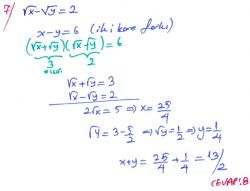 7) √x-√y=2
x-y=6 (iki kare farkı)
(√x+√y)(√x-√y)=6
3 2
√x+√y=3
√x-√y=2
2√x=5 ⇒ x=25/4
√y=3-5/2 ⇒ √y=1/2 ⇒ y=1/4
x+y=25/4+1/4=13/2
CEVAP:B